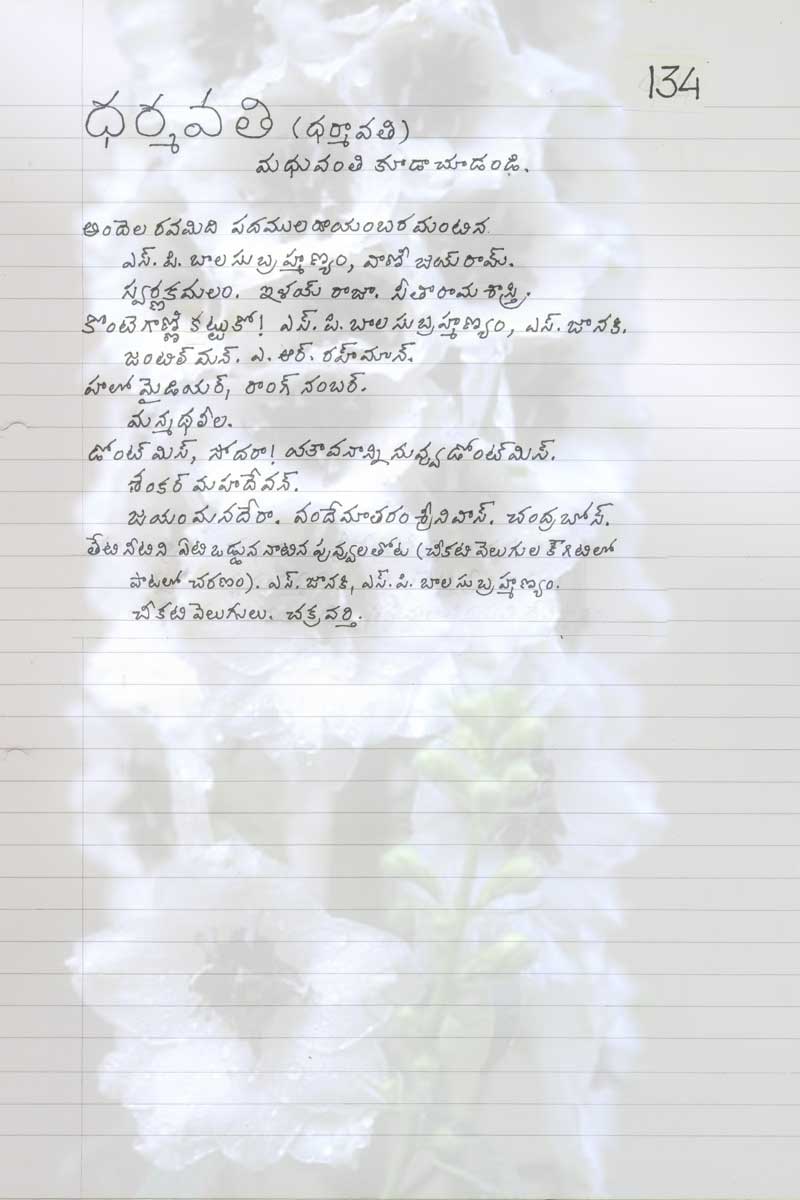 134
ధర్మవతి (ధర్మావతి)
మధువంతి కూడా చూడండి.
అందెల రవమిది పదములదాయంబరమంటిన
ఎస్. పి. బాలసుబ్రహ్మణ్యం, వాణీ జయ్ రామ్.
స్వర్ణకమలం. ఇళయ్ రాజా. సీతారామశాస్త్రి.
కొంటెగాణ్ణి కట్టుకో! ఎస్. పి. బాలసుబ్రహ్మణ్యం, ఎస్. జానకి.
జంటిల్ మన్. ఎ. ఆర్. రహ్మాన్.
హలో మైడియర్, రాంగ్ నంబర్.
మన్మథలీల.
డోంట్ మిస్, సోదరా! యౌవనాన్ని నువ్వు డోంట్ మిస్.
శంకర్ మహాదేవన్.
జయం మనదేరా. వందేమాతరం శ్రీనివాస్. చంద్రబోస్.
తేట నీటిని ఏటి ఒడ్డున నాటిన పువ్వులతోట (చీకటి వెలుగుల కౌగిటిలో
పాటలో చరణం). ఎస్. జానకి, ఎస్. పి. బాలసుబ్రహ్మణ్యం.
చీకటి వెలుగులు. చక్రవర్తి.